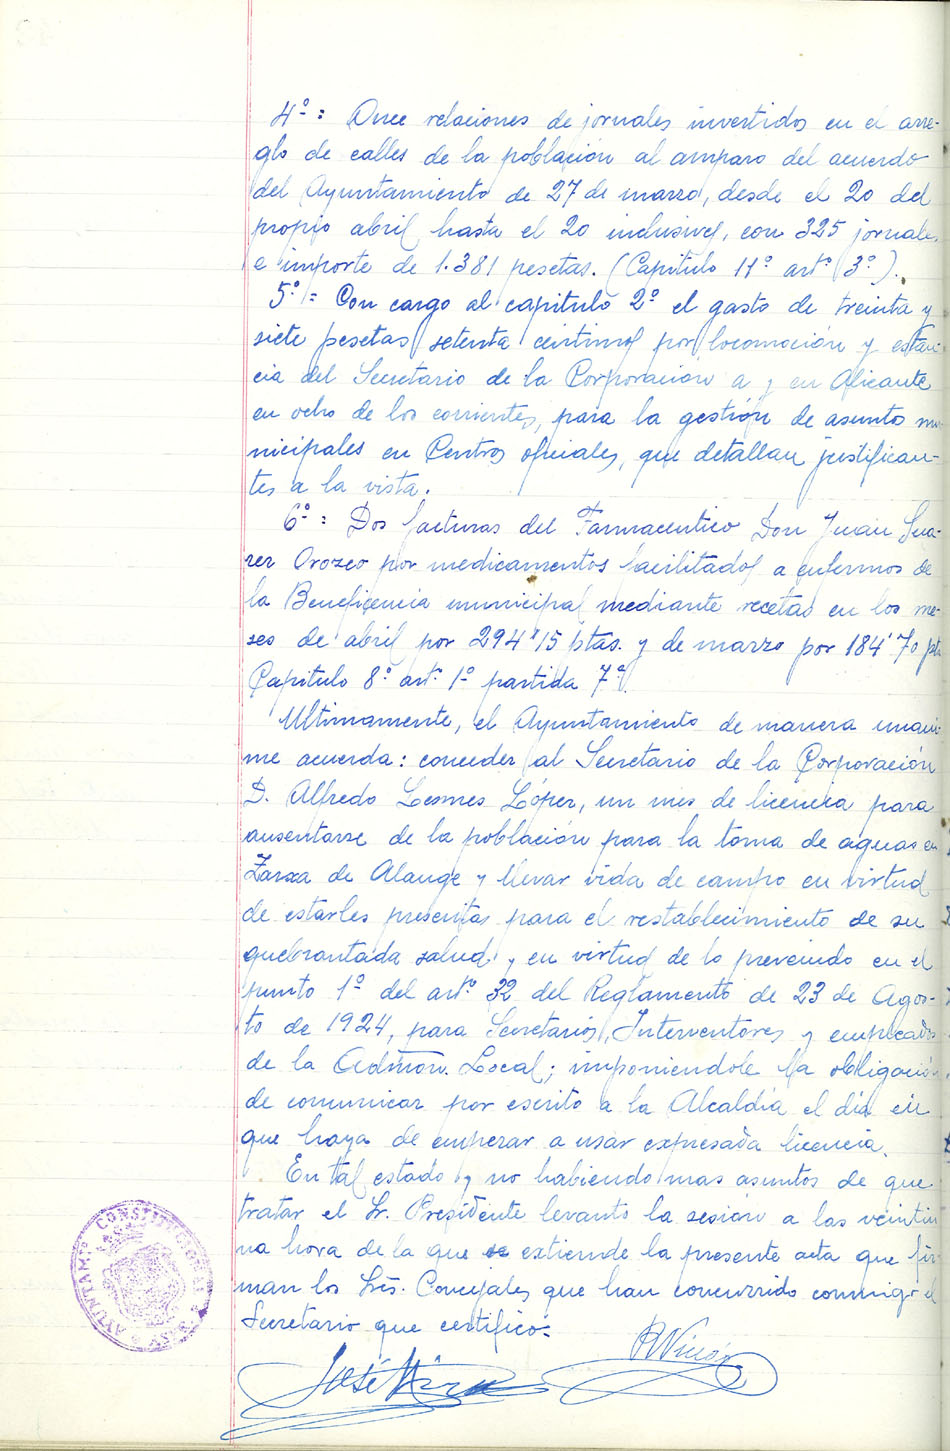 4º: Once relaciones de jornales invertidos en el arre-
glo de calles de la población al amparo del acuerdo
del Ayuntamiento de 27 de marzo, desde el 20 del
propio abril hasta el 20 inclusive, con 325 jornales
e importe de 1.381 pesetas. (Capítulo 11º artº 3º).
5º = Con cargo al capitulo 2º el gasto de treinta y
siete pesetas setenta centimos por locomoción y estan-
cia del Secretario de la Corporación a y en Alicante
en ocho de los corrientes, para la gestión de asuntos mu-
nicipales en Centros oficiales, que detallan justifican-
tes a la vista.
6º: Dos facturas del Farmaceutico Don Juan Sua-
rez Orozco por medicamentos facilitados a enfermos de
la Beneficencia municipal mediante recetas en los me-
ses de abril por 294'15 ptas. y de marzo por 184'70 pts
Capitulo 8º artº 1º partida 7ª.
Ultimamente, el Ayuntamiento de manera unani-
me acuerda: conceder al Secretario de la Corporación
D. Alfredo Lesmes López, un mes de licencia para
ausentarse de la población para la toma de aguas en
Zarza de Alange y llevar vida de campo en virtud
de estarles prescritas para el restablecimiento de su
quebrantada salud y en virtud de lo prevenido en el
punto 1º del artº 32 del Reglamento de 23 de Agos-
to de 1924, para Secretarios, Interventores y empleados
de la Admon. Local; imponiendole la obligación
de comunicar por escrito a la Alcaldía el día en
que haya de empezar a usar expresada licencia.
En tal estado y no habiendo mas asuntos de que
tratar el Sr. Presidente levanto la sesión a las veintiu
na hora de la que se extiende la presente acta que fir-
man los Srs. Concejales que han concurrido conmigo el
Secretario que certifico:
José
AYUNTAMTO CONSTITUCIONAL